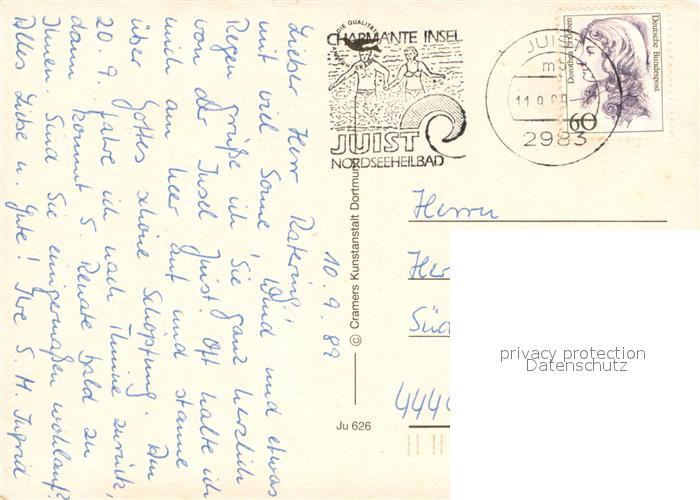 10.9.89
Lieber Herr Ratering!
mit viel Sonne, Wind und etwas
Regen grüße ich Sie ganz herzlich
von der Insel Juist! Oft halte ich
mich am Meer auf und staune
über Gottes schöne Schöpfung. Am
20.9. fahre ich nach Thuine zurück,
dann kommt S. Renate bald zu
Ihnen. Sind Sie einigermaßen wohlauf?
Alles Liebe u. Gute! Ihre S. M. Ingrid
© Cramers Kunstanstalt Dortmund
Ju 626
DIE QUALITÄT
CHARMANTE INSEL
JUIST
NORDSEEHEILBAD
JUIST
mb
11.9.89
2983
Dorothea Erxleben
Deutsche Bundespost
60
Herrn
Her
Süd
444
privacy protection
Datenschutz